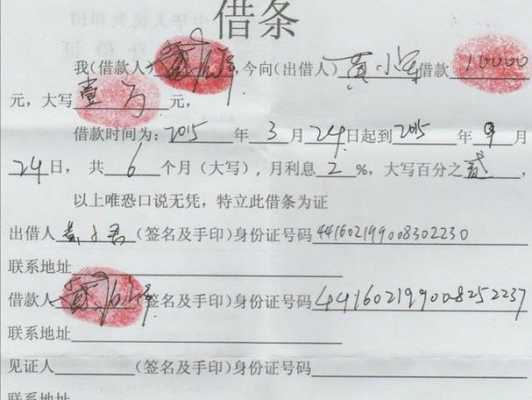 借条
我(借款人)今向(出借人)黄小军借款10000
元，大写壹万元，
借款时间为:2015年3月24日起到2015年9月
24日，共6个月(大写)，月利息2%，大写百分之贰，
以上唯恐口说无凭，特立此借条为证
出借人(签名及手印)身份证号码441602199008302230
联系地址
借款人(签名及手印)身份证号码441602199008252237
联系地址
见证人(签名及手印)身份证号码
联系地址